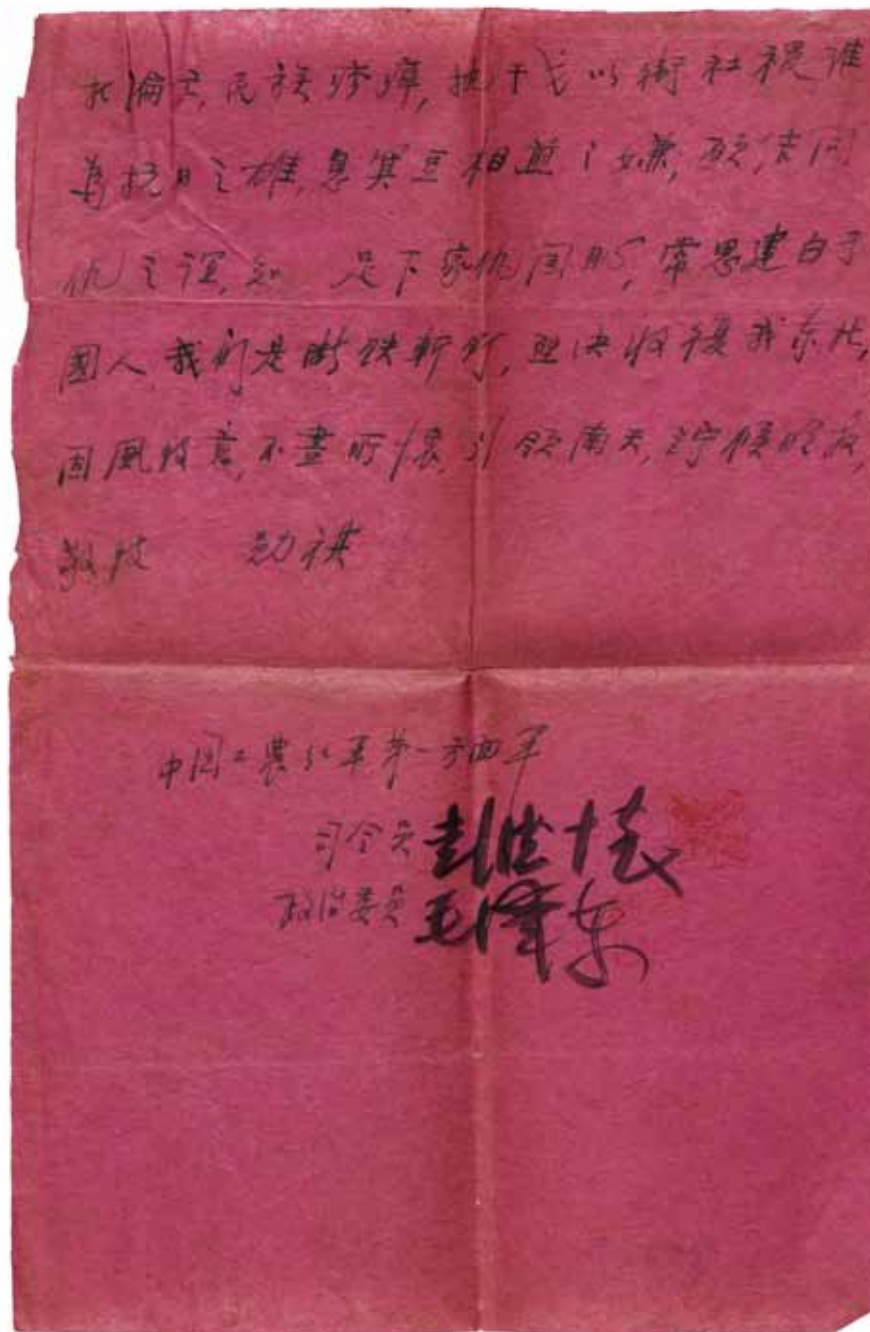 北淪亡,民族疹瘅,执干戈以衛社稷,谁
為抗日之雄,息萁豆相煎之嫌,願结同
仇之谊,知 足下家仇国耻,常思建白于
國人,我们是断铁斩钉,坚决收復我东北,
因風披意,不盡所懷,引领南天,竚候明教,
敬欬 勋祺
中国工農红军第一方面军
司令员 彭德怀
政治委員 毛泽东